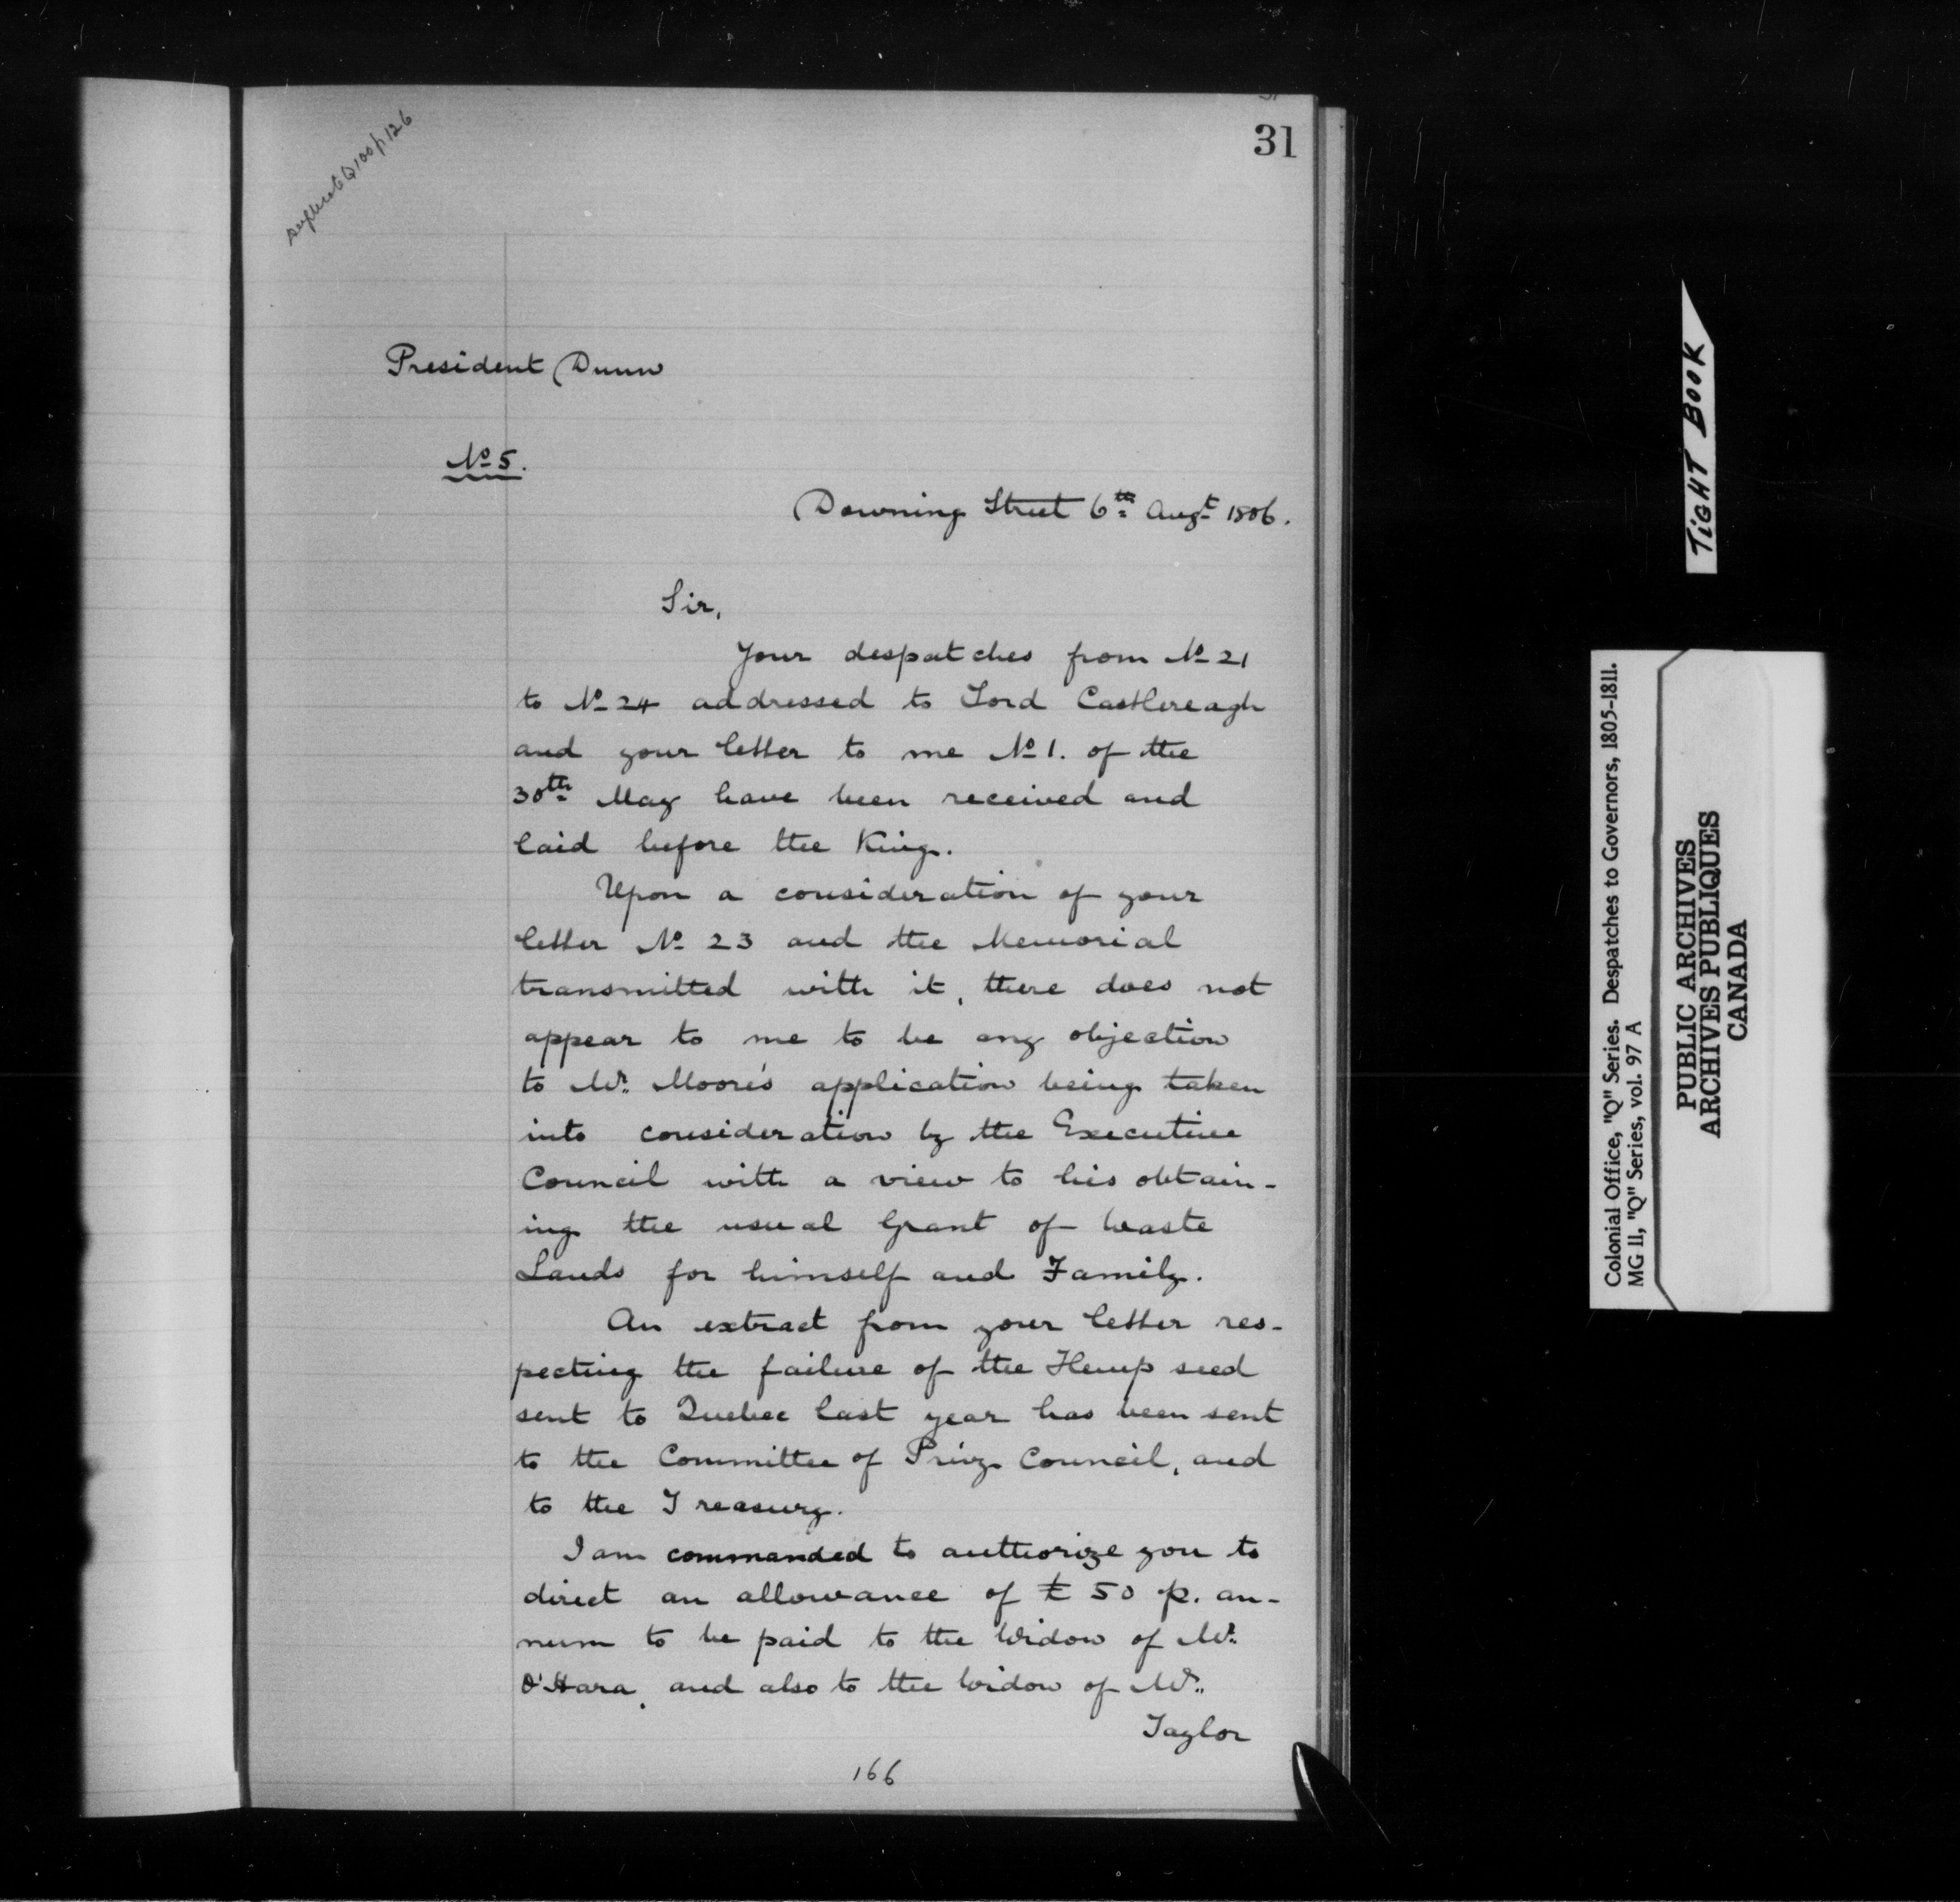 31
Q 100 p 126
President Dunn
No 5.
Downing Street 6th Augt 1806.
Sir,
Your despatches from No 21
to No 24 addressed to Lord Castlereagh
and your letter to me No 1. of the
30th May have been received and
laid before the King.
Upon a consideration of your
letter No 23 and the Memorial
transmitted with it, there does not
appear to me to be any objection
to Mr. Moore's application being taken
into consideration by the Executive
Council with a view to his obtain-
ing the usual Grant of Waste
Lands for himself and Family.
An extract from your letter res-
pecting the failure of the Hemp seed
sent to Quebec last year has been sent
to the Committee of Privy Council, and
to the Treasury.
I am commanded to authorize you to
direct an allowance of £ 50 p. an-
num to be paid to the Widow of Mr.
O'Hara, and also to the Widow of Mr.
Taylor
166
TiGHT BOOK
Colonial Office, "Q" Series. Despatches to Governors, 1805-1811.
MG 11, "Q" Series, vol. 97 A
PUBLIC ARCHIVES
ARCHIVES PUBLIQUES
CANADA